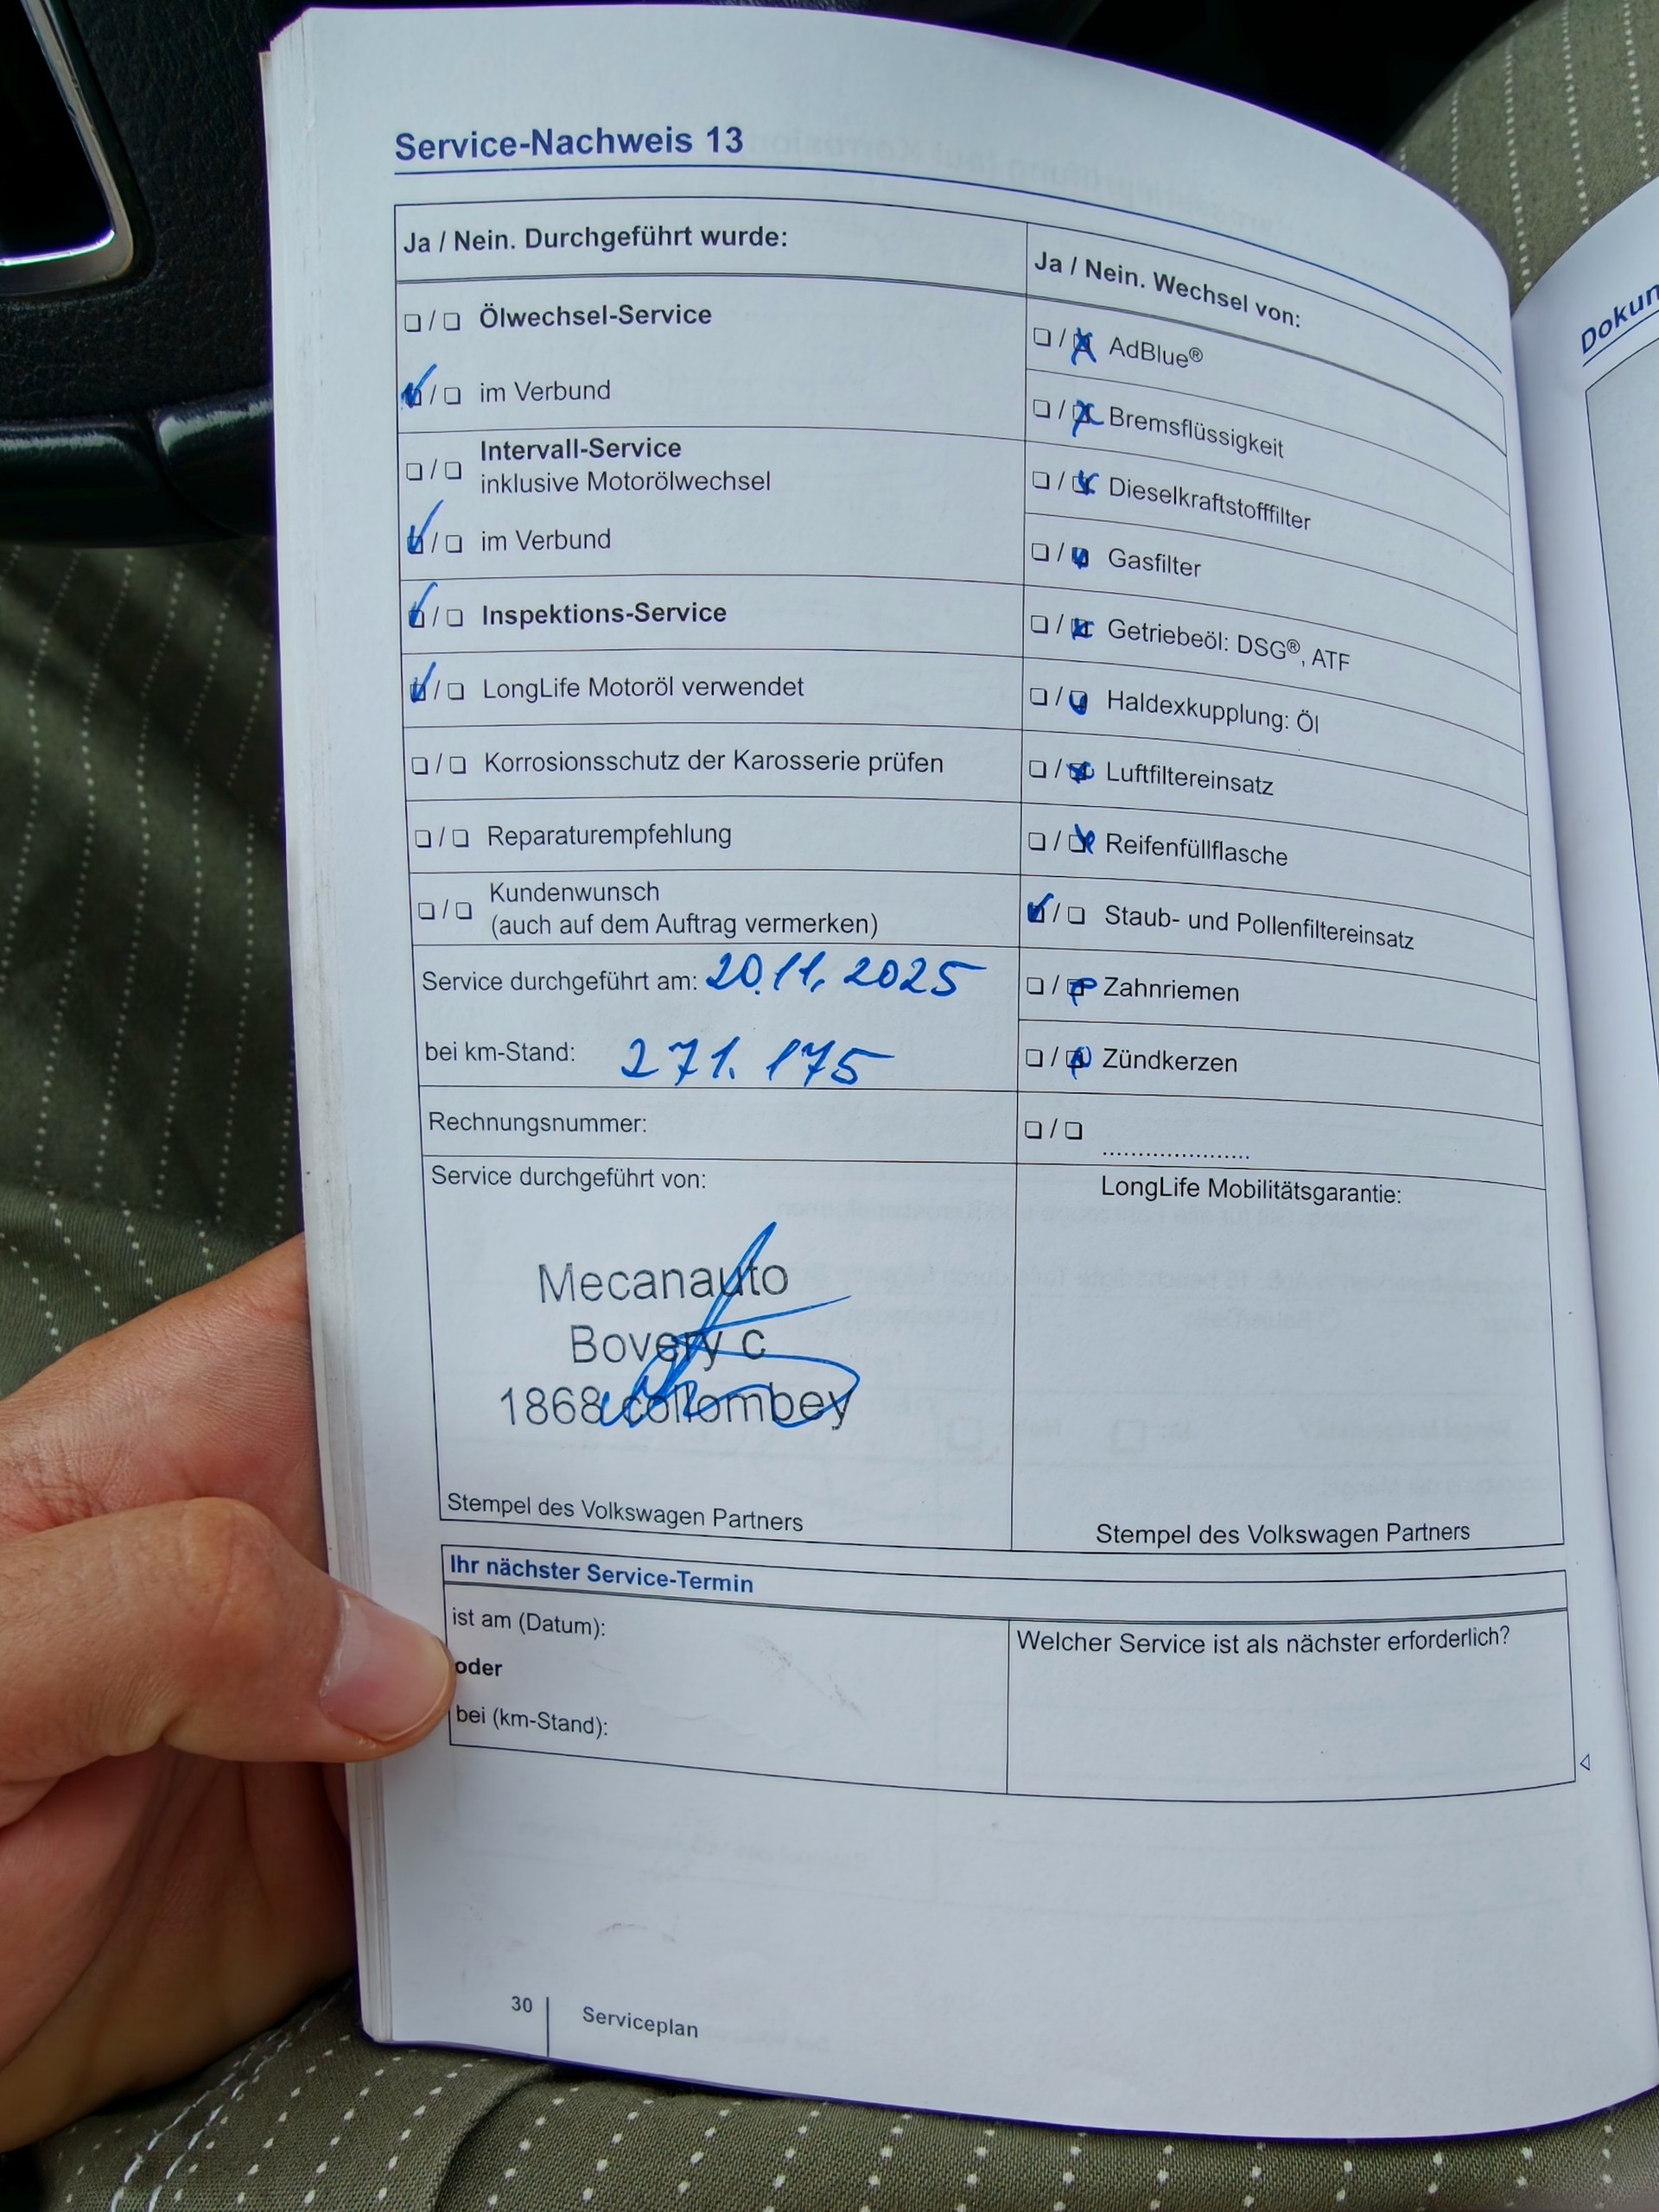 Service-Nachweis 13
Ja / Nein. Durchgeführt wurde:
❏ / ❏ Ölwechsel-Service
✓ / ❏ im Verbund
❏ / ❏ Intervall-Service
inklusive Motorölwechsel
✓ / ❏ im Verbund
✓ / ❏ Inspektions-Service
✓ / ❏ LongLife Motoröl verwendet
❏ / ❏ Korrosionsschutz der Karosserie prüfen
❏ / ❏ Reparaturempfehlung
❏ / ❏ Kundenwunsch
(auch auf dem Auftrag vermerken)
Service durchgeführt am: 20.11.2025
bei km-Stand: 271.175
Rechnungsnummer:
Service durchgeführt von:
Mecanauto
Bovery c
1868 collombey
Stempel des Volkswagen Partners
Ja / Nein. Wechsel von:
❏ / ☒ AdBlue®
❏ / ☒ Bremsflüssigkeit
❏ / ☒ Dieselkraftstofffilter
❏ / ☒ Gasfilter
❏ / ☒ Getriebeöl: DSG®, ATF
❏ / ☒ Haldexkupplung: Öl
❏ / ☒ Luftfiltereinsatz
❏ / ☒ Reifenfüllflasche
✓ / ❏ Staub- und Pollenfiltereinsatz
❏ / ☒ Zahnriemen
❏ / ☒ Zündkerzen
❏ / ❏ .....................
LongLife Mobilitätsgarantie:
Stempel des Volkswagen Partners
Ihr nächster Service-Termin
ist am (Datum):
oder
bei (km-Stand):
Welcher Service ist als nächster erforderlich?
30 Serviceplan